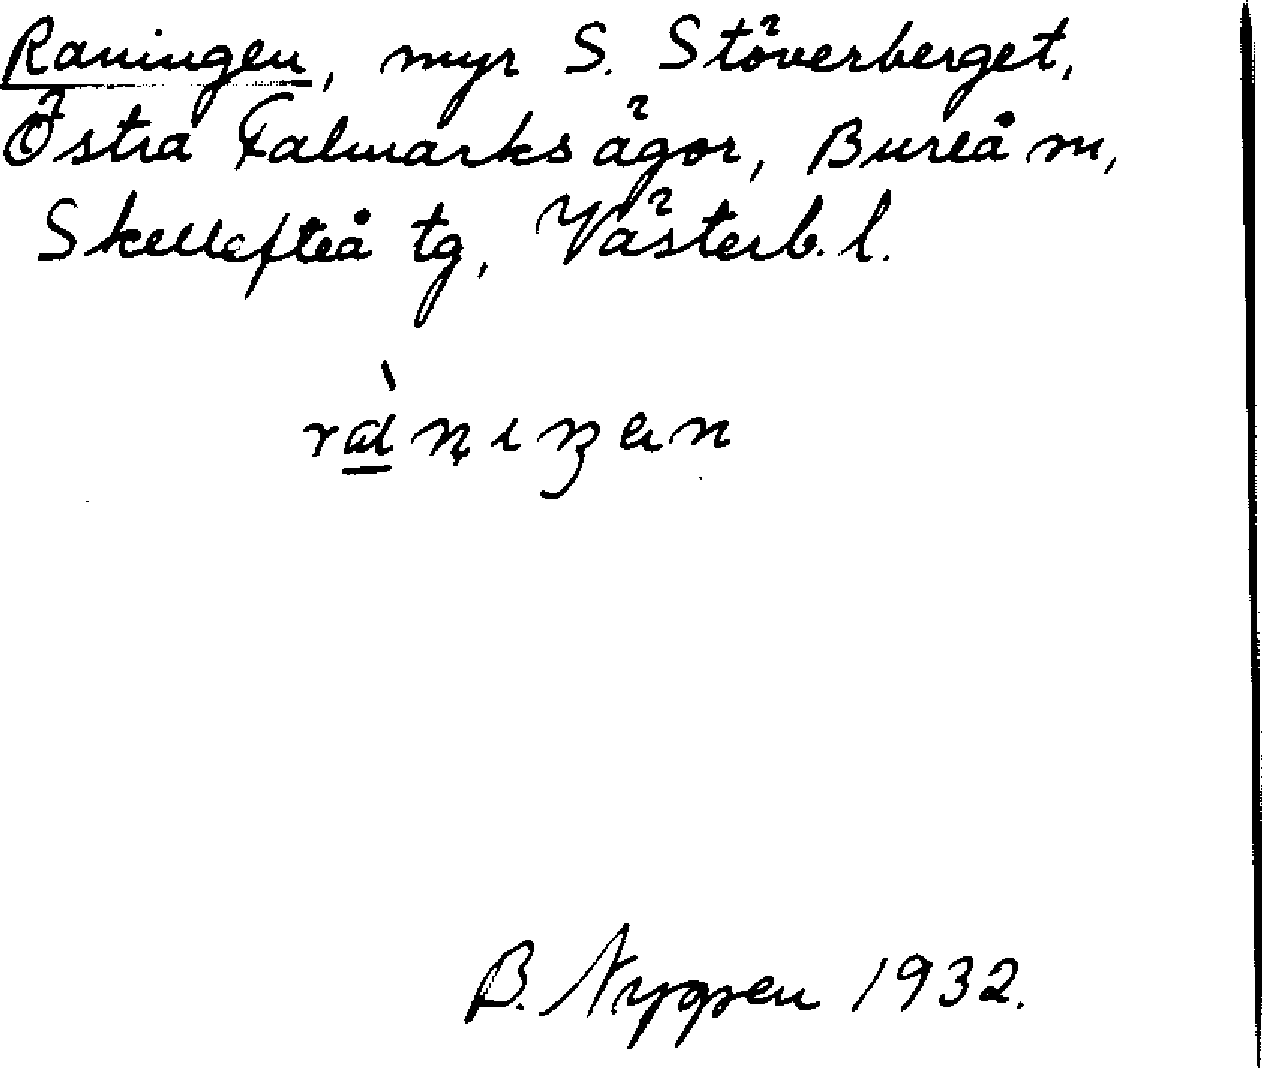 Raningen, myr S. Stöverberget,
Östra Falmarks ägor, Bureå m,
Skellefteå tg, Västerb. l.
B. Nygren 1932.